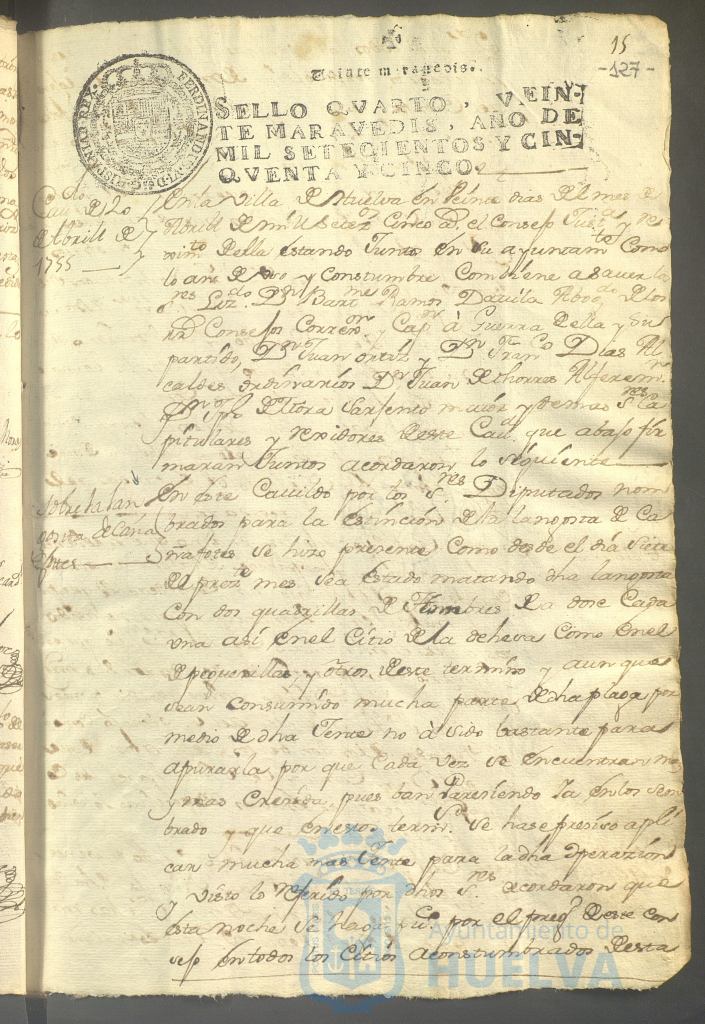 15
-127-
Veinte maravedis.
SELLO QVARTO, VEIN-
TE MARAVEDIS, AÑO DE
MIL SETECIENTOS Y CIN-
QVENTA Y CINCO.
FERDINANDUS VI D G HISPANIAR REX
Cav.do de 20
de Abrill de
1755
En la Villa de Huelva en Veinte dias del mes de
Abrill de mill setez.s cinco a.s el Consejo Just.a y Re
xim.to della estando Junto en su ayuntam.to Como
lo an de uso y Constumbre Combiene a saver los
s.res Liz.do D.n Bart.me Ramos Davila Abog.do de los
R.s Consejos Correx.or y Cap.n à Guerra della y su
partido, D.n Juan ortiz y D.n Fran.co Dias Al
caldes ordinarios D.n Juan de thorres Alferez m.r
de Mora Sarjento maior y demas S.res Ca
pitulares y rexidores deste Cav.do que abajo fir
maran Juntos acordaron lo siguiente
sobre la lan
gosta de Cana
fotes
En este Cavildo por los S.res Diputados nom
brados para la estinción de la langosta de Ca
ñafotes se hizo presente Como desde el dia siete
del prez.te mes sea estado matando dha langosta
Con dos quadrillas de Hombres de a dose Cada
una asi en el Citio de la deheva Como en el
de pequenillas y otros deste termino y aunque
sean Consumido mucha parte de dha plaga por
medio de dha Jente no à sido bastante para
apurarla por que Cada vez se encuentran ma
y mas Cresida, pues ban pareciendo Ya en los sem
brado y que en estos term.s se hase presiso apli
can mucha mas Jente para la dha Operazión
y visto lo referido por dhos S.res acordaron que
Esta noche se haga por el preg.n deste Con
sejo En todos los Citios aconstumbrados desta
Ayuntamiento de
HUELVA